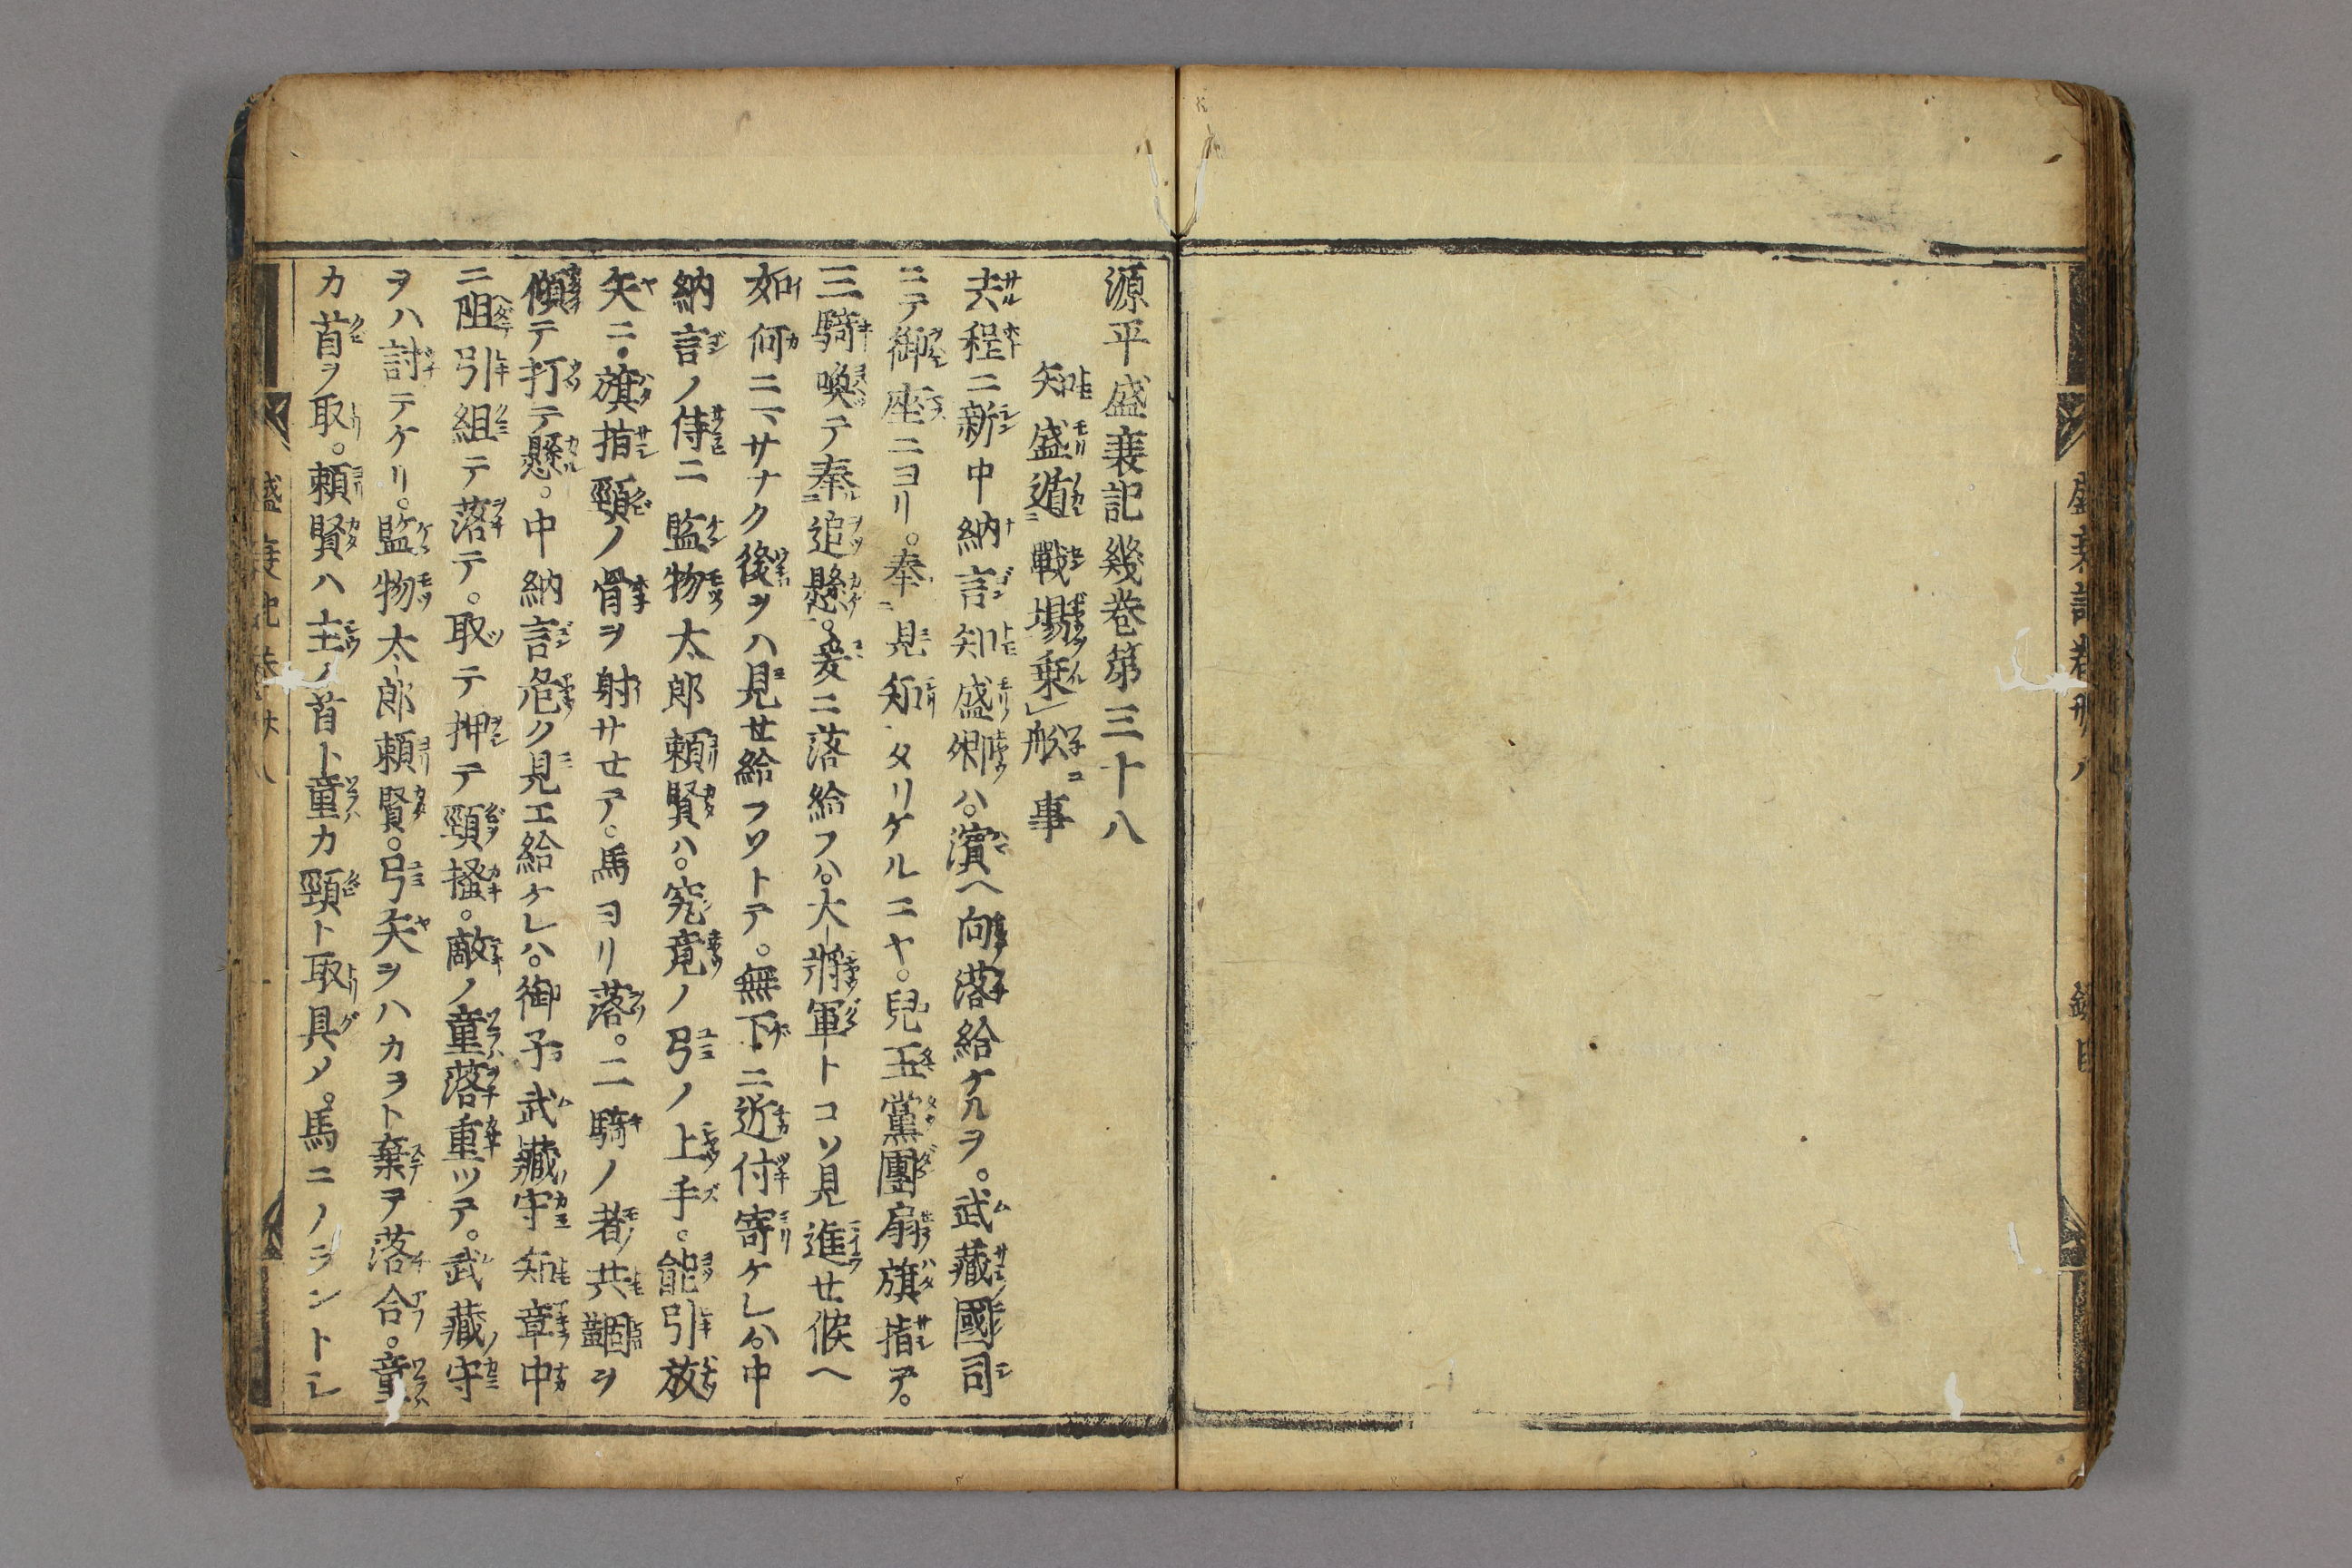 源平盛衰記幾巻第三十八
知盛遁戰場乗船事
去程ニ新中納言知盛卿ハ。濱ヘ向落給ケルヲ。武藏國司
ニテ御座ニヨリ。奉見知タリケルニヤ。兒玉黨團扇旗指テ。
三騎喚テ奉追懸。爰ニ落給フハ。大將軍トコソ見進せ候ヘ
如何ニマサナク後ヲハ見せ給フソトテ。無下ニ近付寄ケレハ。中
納言ノ侍ニ監物太郎頼賢ハ。究竟ノ弓ノ上手。能引放
矢ニ。旗指頸ノ骨ヲ射サセテ。馬ヨリ落。二騎ノ者共錮ヲ
傾テ打テ懸。中納言危ク見エ給ケレハ。御子武藏守知章中
ニ阻引組テ落テ。取テ押テ頸搔。敵ノ童落重ツテ。武藏守
ヲハ討テケリ。監物太郎頼賢。弓矢ヲハカラト棄テ落合。童
カ首ヲ取。頼賢ハ主ノ首ト童カ頸ト取具メ。馬ニノラントレ
盛衰記巻卅八
一